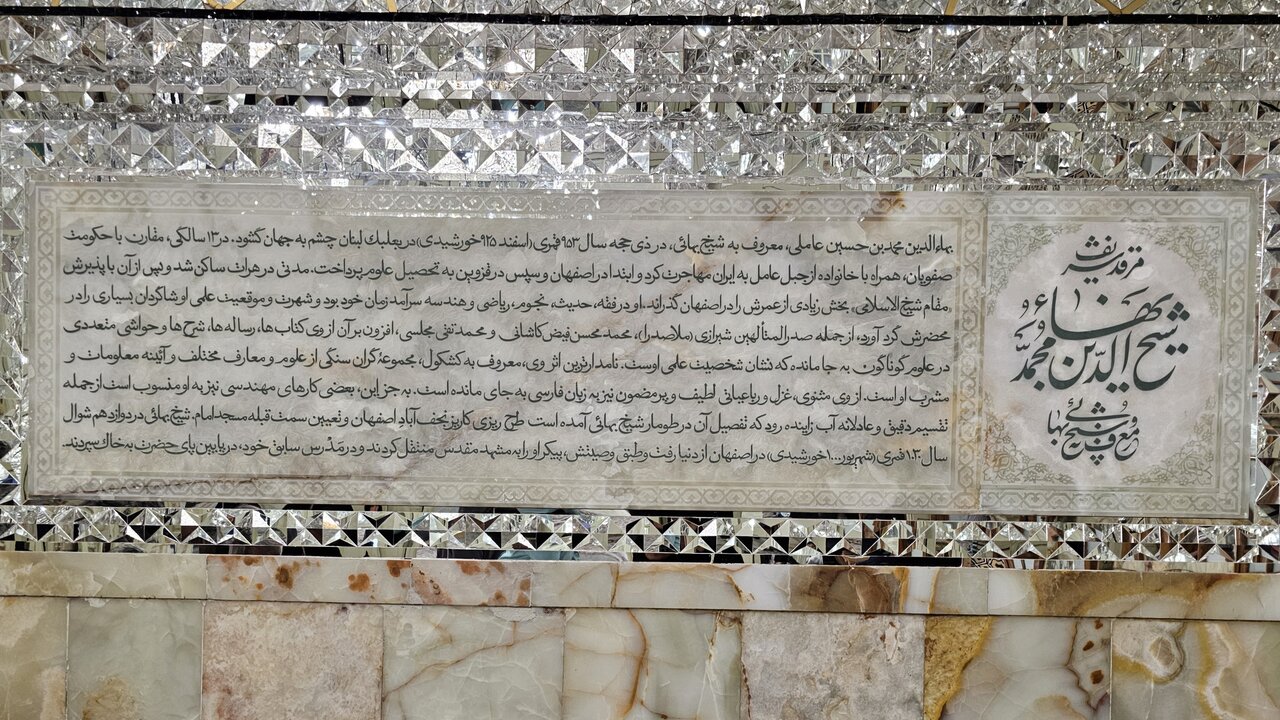 مرقد شریف
شیخ بهاء الدین محمد
معروف به شیخ بهائی
بهاءالدین محمد بن حسین عاملی، معروف به شیخ بهائی، در ذی حجه سال ۹۵۳ قمری (اسفند ۹۲۵ خورشیدی) در بعلبک لبنان چشم به جهان گشود. در ۱۳ سالگی، مقارن با حکومت
صفویان، همراه با خانواده از جبل عامل به ایران مهاجرت کرد و ابتدا در اصفهان و سپس در قزوین به تحصیل علوم پرداخت. مدتی در هرات ساکن شد و پس از آن با پذیرش
مقام شیخ الاسلامی، بخش زیادی از عمرش را در اصفهان گذراند. او در فقه، حدیث، نجوم، ریاضی و هندسه سرآمد زمان خود بود و شهرت و موقعیت علمی او شاگردان بسیاری را در
محضرش گرد آورد، از جمله صدرالمتألهین شیرازی (ملاصدرا)، محمد محسن فیض کاشانی و محمد تقی مجلسی، افزون بر آن از وی کتاب‌ها، رساله‌ها، شرح‌ها و حواشی متعددی
در علوم گوناگون به جا مانده که نشان شخصیت علمی اوست. نامدارترین اثر وی، معروف به کشکول، مجموعهٔ گران سنگی از علوم و معارف مختلف و آئینه معلومات و
مشرب او است. از وی مثنوی، غزل و رباعیاتی لطیف و پر مضمون نیز به زبان فارسی به جای مانده است. به جز این، بعضی کارهای مهندسی نیز به او منسوب است از جمله
تقسیم دقیق و عادلانه آب زاینده رود که تفصیل آن در طومار شیخ بهائی آمده است طرح ریزی کاریز نجف آباد اصفهان و تعیین سمت قبله مسجد امام. شیخ بهائی در دوازدهم شوال
سال ۱۰۳۰ قمری (شهریور ۱۰۰۰ خورشیدی) در اصفهان از دنیا رفت و طبق وصیتش، پیکر او را به مشهد مقدس منتقل کردند و در مَدْرس سابق خود، در پایین پای حضرت به خاک سپردند.